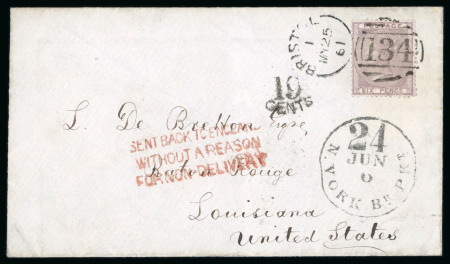 BRISTOL
1
MY 25
61
POSTAGE
134
SIX PENCE
19
CENTS
L. De Bretton Esqre,
SENT BACK TO ENGLAND
WITHOUT A REASON
FOR NON-DELIVERY
Baton Rouge
24
JUN
6
N. YORK BR. PKT
Louisiana
United States